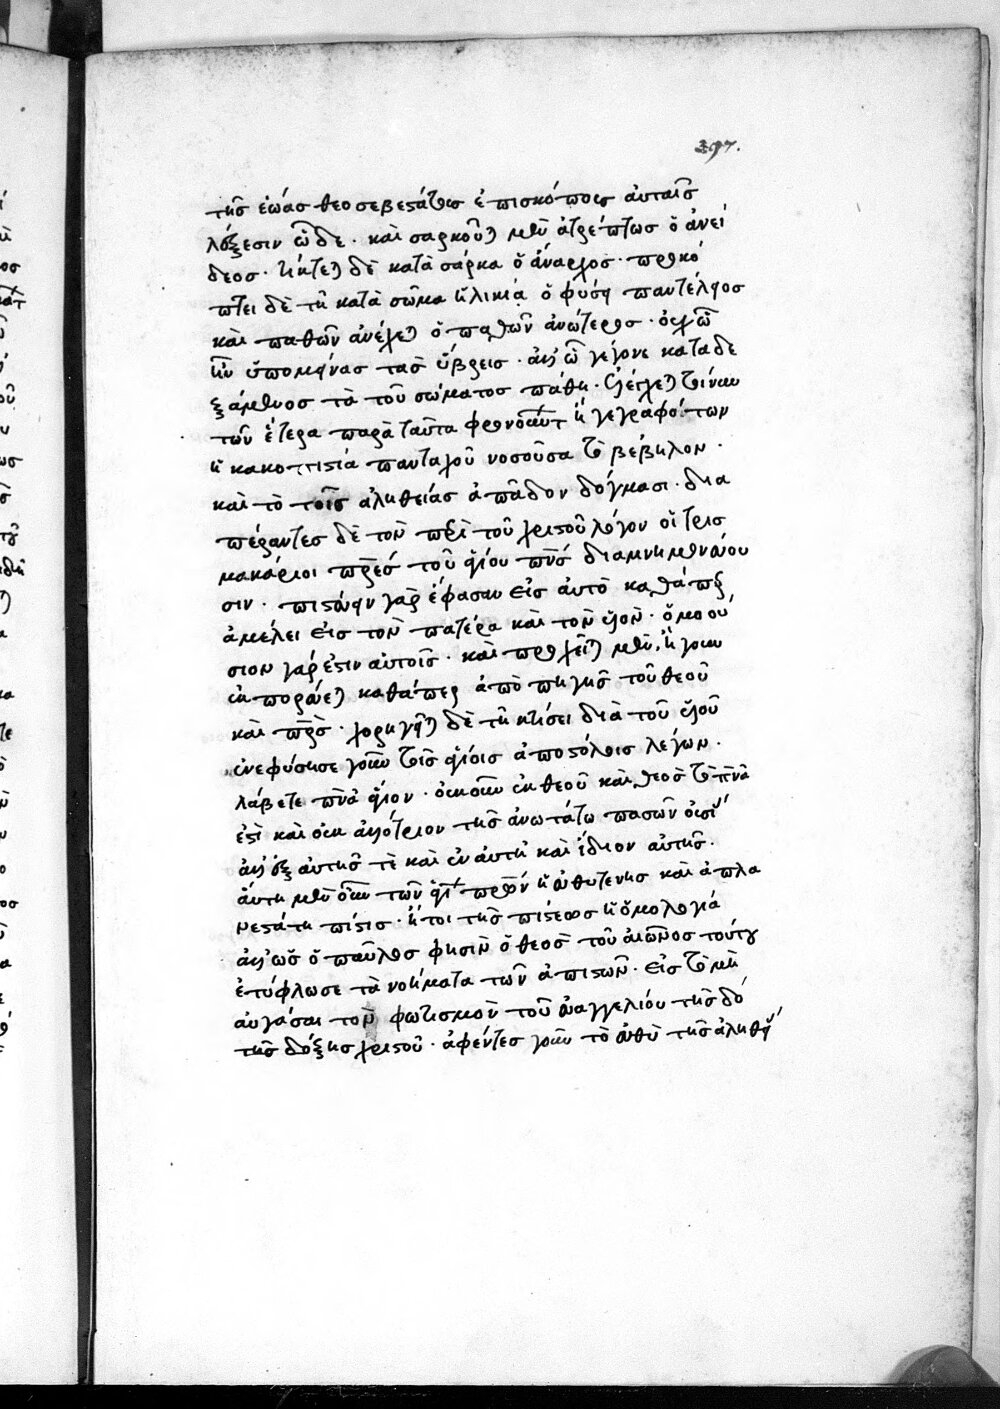 397.
τῆς ἑώας θεοσεβεστάτοις ἐπισκόποις αὐταῖς
λέξεσιν ὧδε · καὶ σαρκοῦται μὲν ἀτρέπτως ὁ ἀνεί
δεος · τίκτεται δὲ κατὰ σάρκα ὁ ἄναρχος · προκό
πτει δὲ τῇ κατὰ σῶμα ἡλικίᾳ ὁ φύσει παντέλειος
καὶ παθῶν ἀνέχεται ὁ παθῶν ἀνώτερος · οὐχ ὧν
ἦν ὑπομείνας τὰς ὕβρεις · ἀλλ' ὧν γέγονε καταδε
ξάμενος τὰ τοῦ σώματος πάθη · ἐλέγχεται τοίνυν
τῶν ἕτερα παρὰ ταῦτα φρονούντων ἢ γεγραφότων
ἡ κακοπιστία πανταχοῦ νοσοῦσα τὸ βέβηλον ·
καὶ τὸ τοῖς ἀληθείας ἀπᾶδον δόγμασι · δια
πέραντες δὲ τὸν περὶ τοῦ χριστοῦ λόγον οἱ τρὶς
μακάριοι πρες τοῦ ἁγίου πνς διαμνημονεύου
σιν · πιστεύειν γὰρ ἔφασαν εἰς αὐτὸ καθάπερ
ἀμέλει εἰς τὸν πατέρα καὶ τὸν υἱόν · ὁμοού
σιον γάρ ἐστιν αὐτοῖς · καὶ προχεῖται μὲν, ἤγουν
ἐκπορεύεται καθάπερ ἀπὸ πηγῆς τοῦ θεοῦ
καὶ πρς · χορηγεῖται δὲ τῇ κτίσει διὰ τοῦ υἱοῦ
ἐνεφύσησε γοῦν τοῖς ἁγίοις ἀποστόλοις λέγων ·
λάβετε πνα ἅγιον · οὐκοῦν ἐκ θεοῦ καὶ θεὸς τὸ πνα
ἐστὶ καὶ οὐκ ἀλλότριον τῆς ἀνωτάτω πασῶν οὐσίας
ἀλλ' ἐξ αὐτῆς τὲ καὶ ἐν αὐτῇ καὶ ἴδιον αὐτῆς ·
αὕτη μὲν οὖν τῶν ἁγίων πρων ἡ εὐθυτενης καὶ ἀπλα
νεστάτη πίστις · ἤτοι τῆς πίστεως ἡ ὁμολογία
ἀλλ' ὡς ὁ παῦλος φησὶν ὁ θεὸς τοῦ αἰῶνος τούτου
ἐτύφλωσε τὰ νοήματα τῶν ἀπίστων · εἰς τὸ μὴ
αὐγάσαι τὸν φωτισμὸν τοῦ εὐαγγελίου τῆς δό
τῆς δόξης χριστοῦ · ἀφέντες γοῦν τὸ εὐθὺ τῆς ἀληθείας